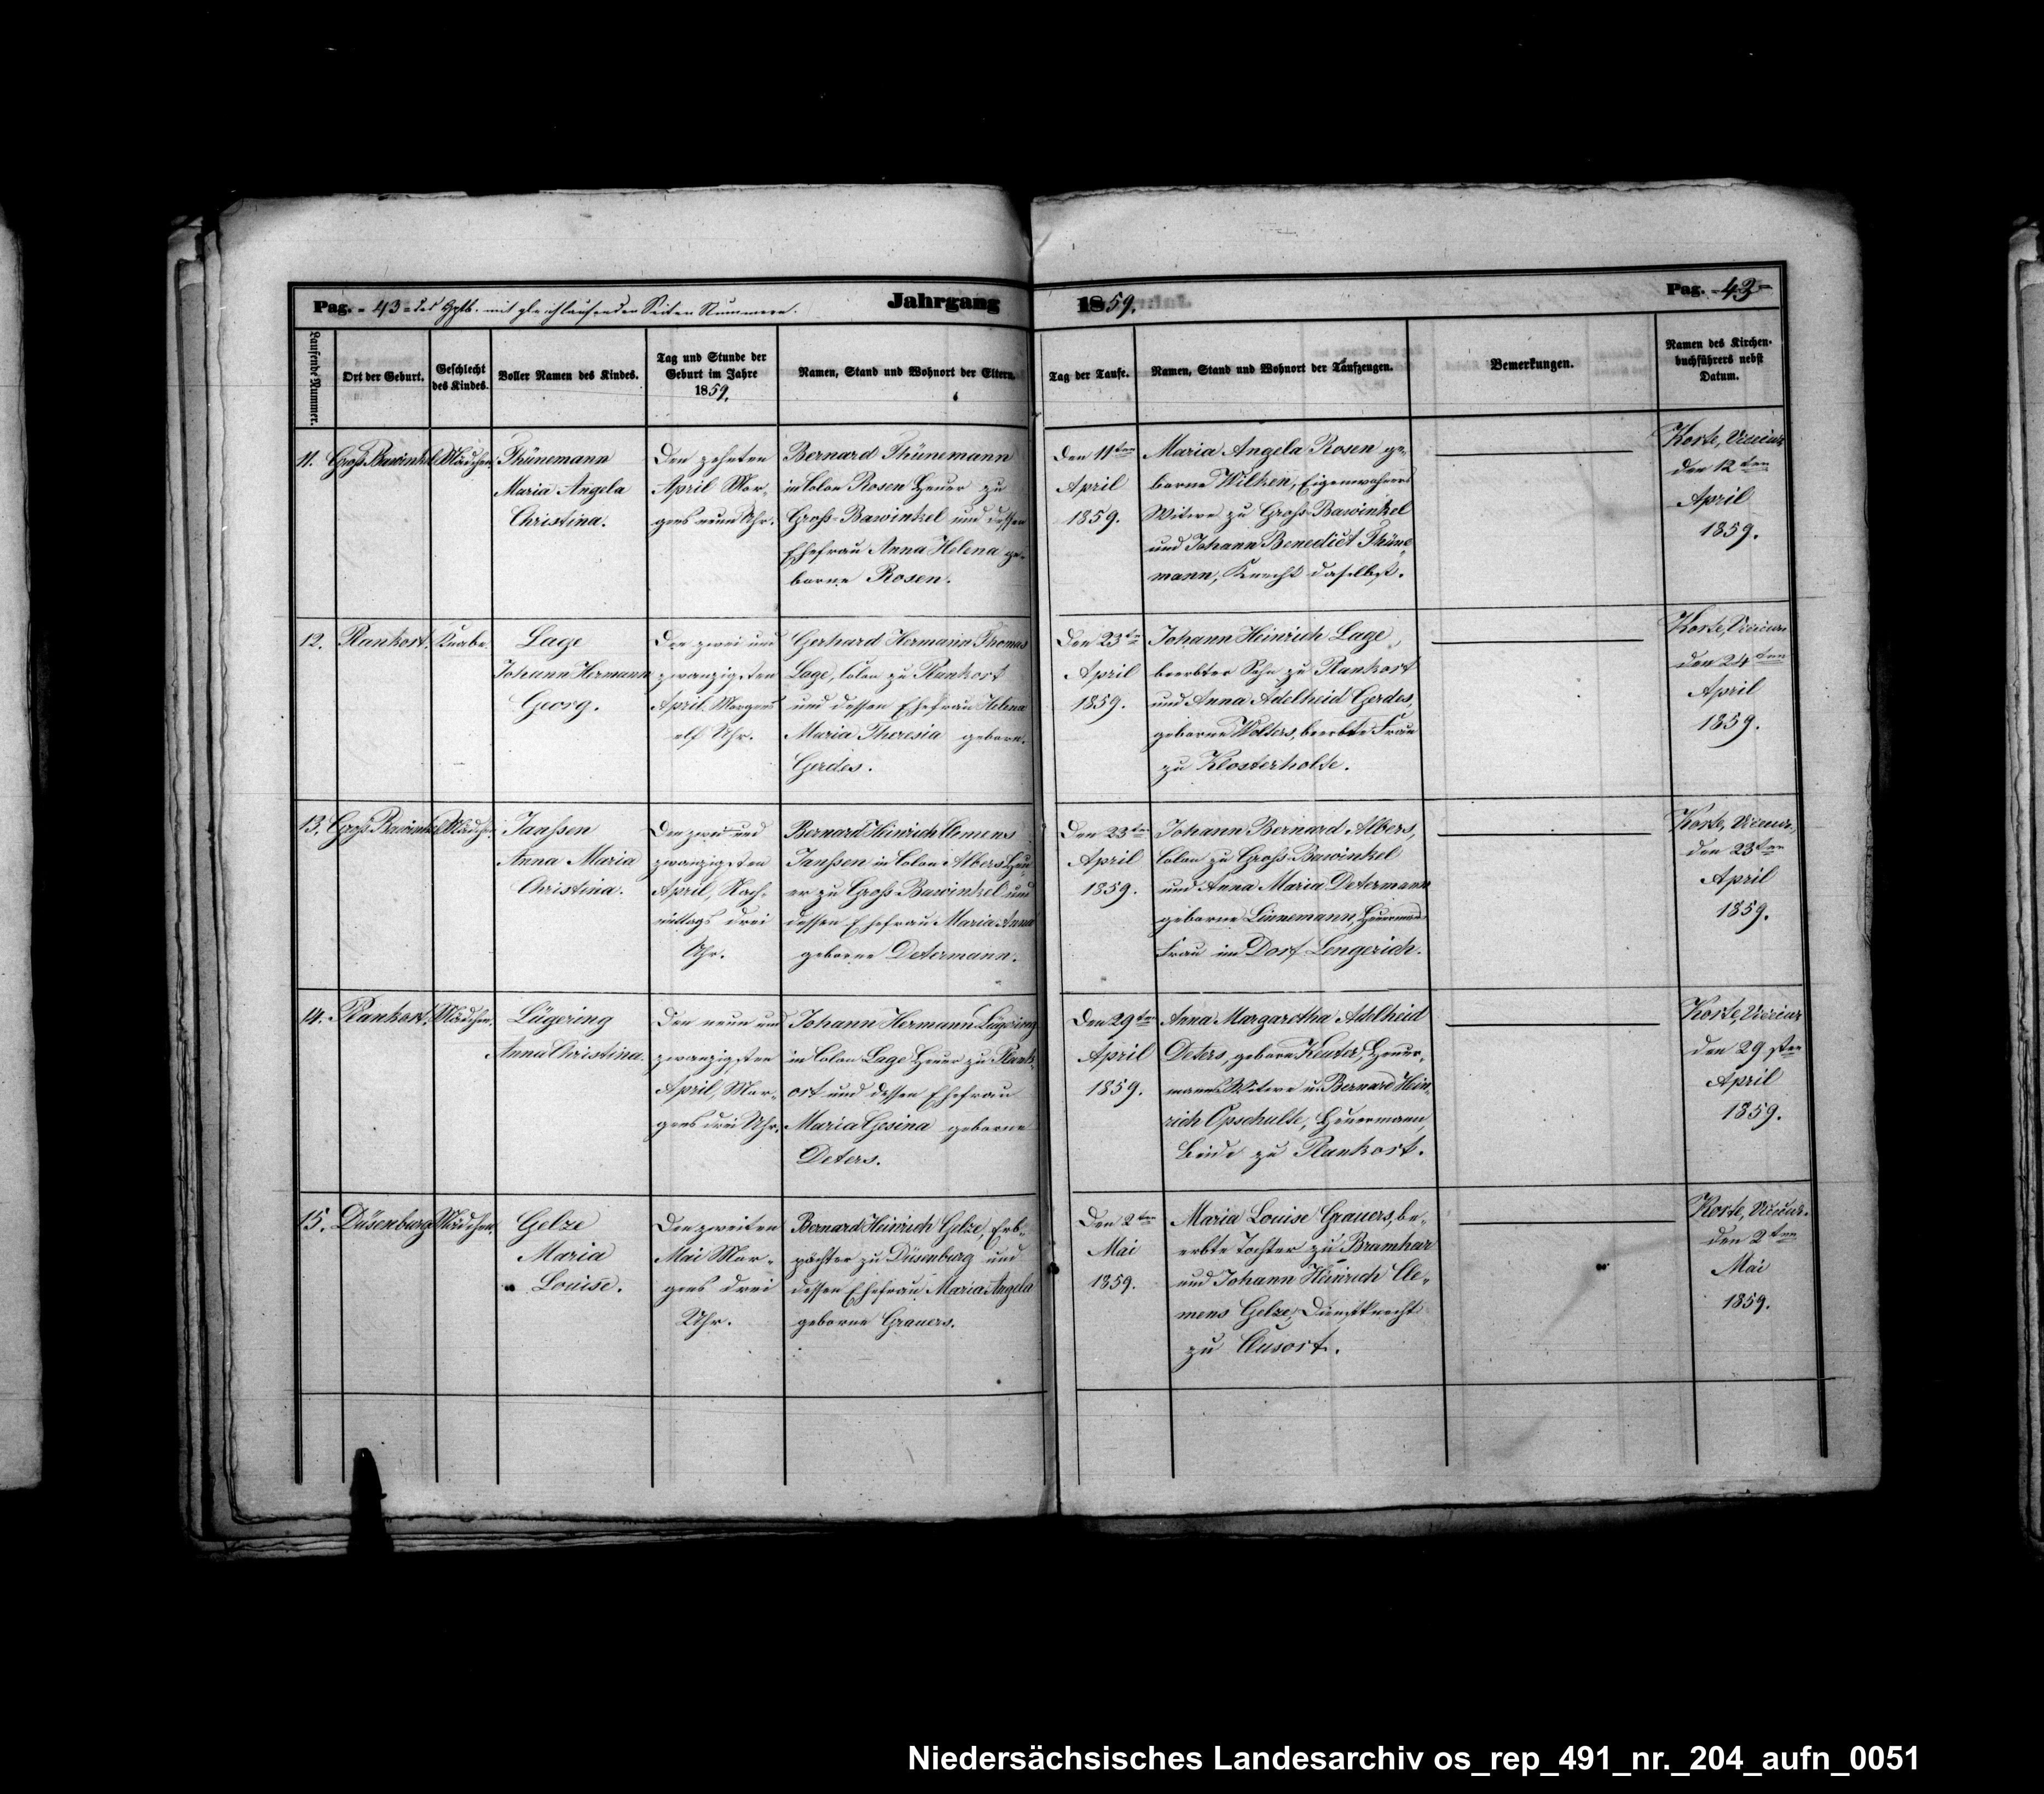 Pag. - 43 - des Hptb. mit gleichlaufenden Seiten Nummern.
Jahrgang
1859.
Pag. - 43 -
Laufende Nummer.
Ort der Geburt.
Geschlecht
des Kindes.
Voller Namen des Kindes.
Tag und Stunde der
Geburt im Jahre
1859.
Namen, Stand und Wohnort der Eltern.
Tag der Taufe.
Namen, Stand und Wohnort der Taufzeugen.
Bemerkungen.
Namen des Kirchen-
buchführers nebst
Datum.
11.
Groß Bawinkel
Mädchen
Thünemann
Maria Angela
Christina.
Den zehnten
April Mor-
gens neun Uhr.
Bernard Thünemann
in Colon Rosen Heuer zu
Groß-Bawinkel und dessen
Ehefrau Anna Helena ge-
borne Rosen.
Den 11ten
April
1859.
Maria Angela Rosen ge-
borne Wilken, Eigenwohners
Witwe zu Groß-Bawinkel
und Johann Benedict Thüne-
mann, Knecht daselbst.
Korte, Vicear
den 12ten
April
1859.
12.
Plankort.
Knabe.
Lage
Johann Hermann
Georg.
Den zwei und
zwanzigsten
April Morgens
elf Uhr.
Gerhard Hermann Thomas
Lage, Colon zu Plankort
und dessen Ehefrau Helena
Maria Theresia geborn.
Gerdes.
Den 23ten
April
1859.
Johann Heinrich Lage,
beerbter Sohn zu Plankort
und Anna Adelheid Gerdes,
geborne Wolters, beerbte Frau
zu Klosterholte.
Korte, Vicear.
den 24ten
April
1859.
13.
Groß Bawinkel
Mädchen
Janßen
Anna Maria
Christina.
Den zwei und
zwanzigsten
April, Nach-
mittags drei
Uhr.
Bernard Heinrich Clemens
Janßen in Colon Albers Heu-
er zu Groß-Bawinkel und
dessen Ehefrau Maria Anna
geborne Determann.
Den 23ten
April
1859.
Johann Bernard Albers,
Colon zu Groß-Bawinkel
und Anna Maria Determann
geborne Linnemann, Heuermanns
Frau im Dorf Lengerich.
Korte, Vicear.
den 23ten
April
1859.
14.
Plankort.
Mädchen.
Lügering
Anna Christina.
Den neun und
zwanzigsten
April, Mor-
gens drei Uhr.
Johann Hermann Lügering
in Colon Lage Heuer zu Plank-
ort und dessen Ehefrau
Maria Gesina geborne
Deters.
Den 29ten
April
1859.
Anna Margaretha Adelheid
Deters, geborn Keuter, Heuer-
manns Witwe u. Bernard Hein-
rich Opschulte, Heuermann,
beide zu Plankort.
Korte, Vicear
den 29sten
April
1859.
15.
Düsenburg
Mädchen.
Gelze
Maria
Louise.
Den zweiten
Mai Mor-
gens drei
Uhr.
Bernard Heinrich Gelze, Erb-
pächter zu Düsenburg und
dessen Ehefrau Maria Angela
geborne Grauers.
Den 2ten
Mai
1859.
Maria Louise Grauers, be-
erbte Tochter zu Bramhar
und Johann Heinrich Cle-
mens Gelze, Dienstknecht
zu Clusort.
Korte, Vicear.
den 2ten
Mai
1859.
Niedersächsisches Landesarchiv os_rep_491_nr._204_aufn_0051